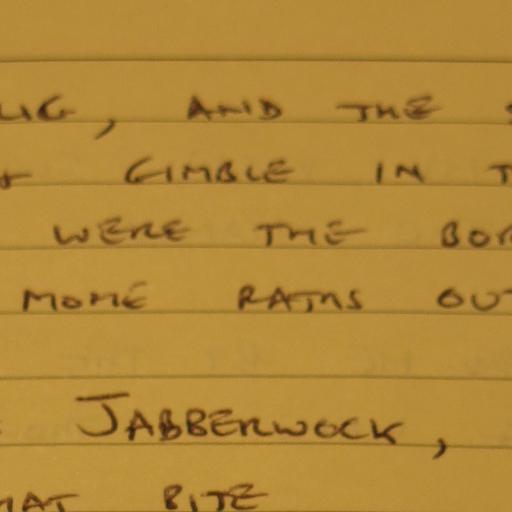 LIG, AND THE
GIMBLE IN T
WERE THE BOR
MOME RATHS OUT
JABBERWOCK,
HAT BITE